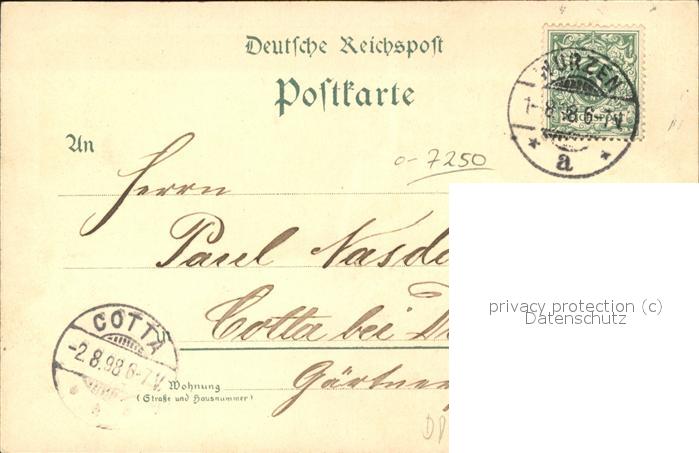 Deutsche Reichspost
Postkarte
WURZEN
1 8 98 6-7V.
a
An
o-7250
Herrn
Paul Nasd
Cotta bei D
privacy protection (c)
Datenschutz
COTTA
-2.8.98 6-7V.
Wohnung
(Straße und Hausnummer)
Gärtner
DD